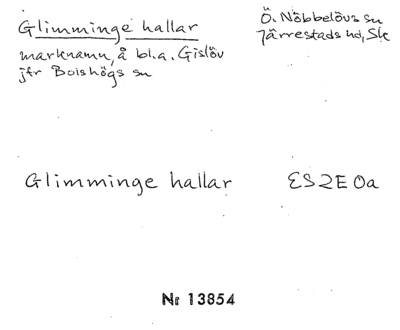 Glimminge hallar
marknamn, å bl.a. Gislöv
jfr Bolshögs sn
Ö. Nöbbelövs sn
Järrestads hd, Sk
Glimminge hallar ES2E0a
Nr 13854